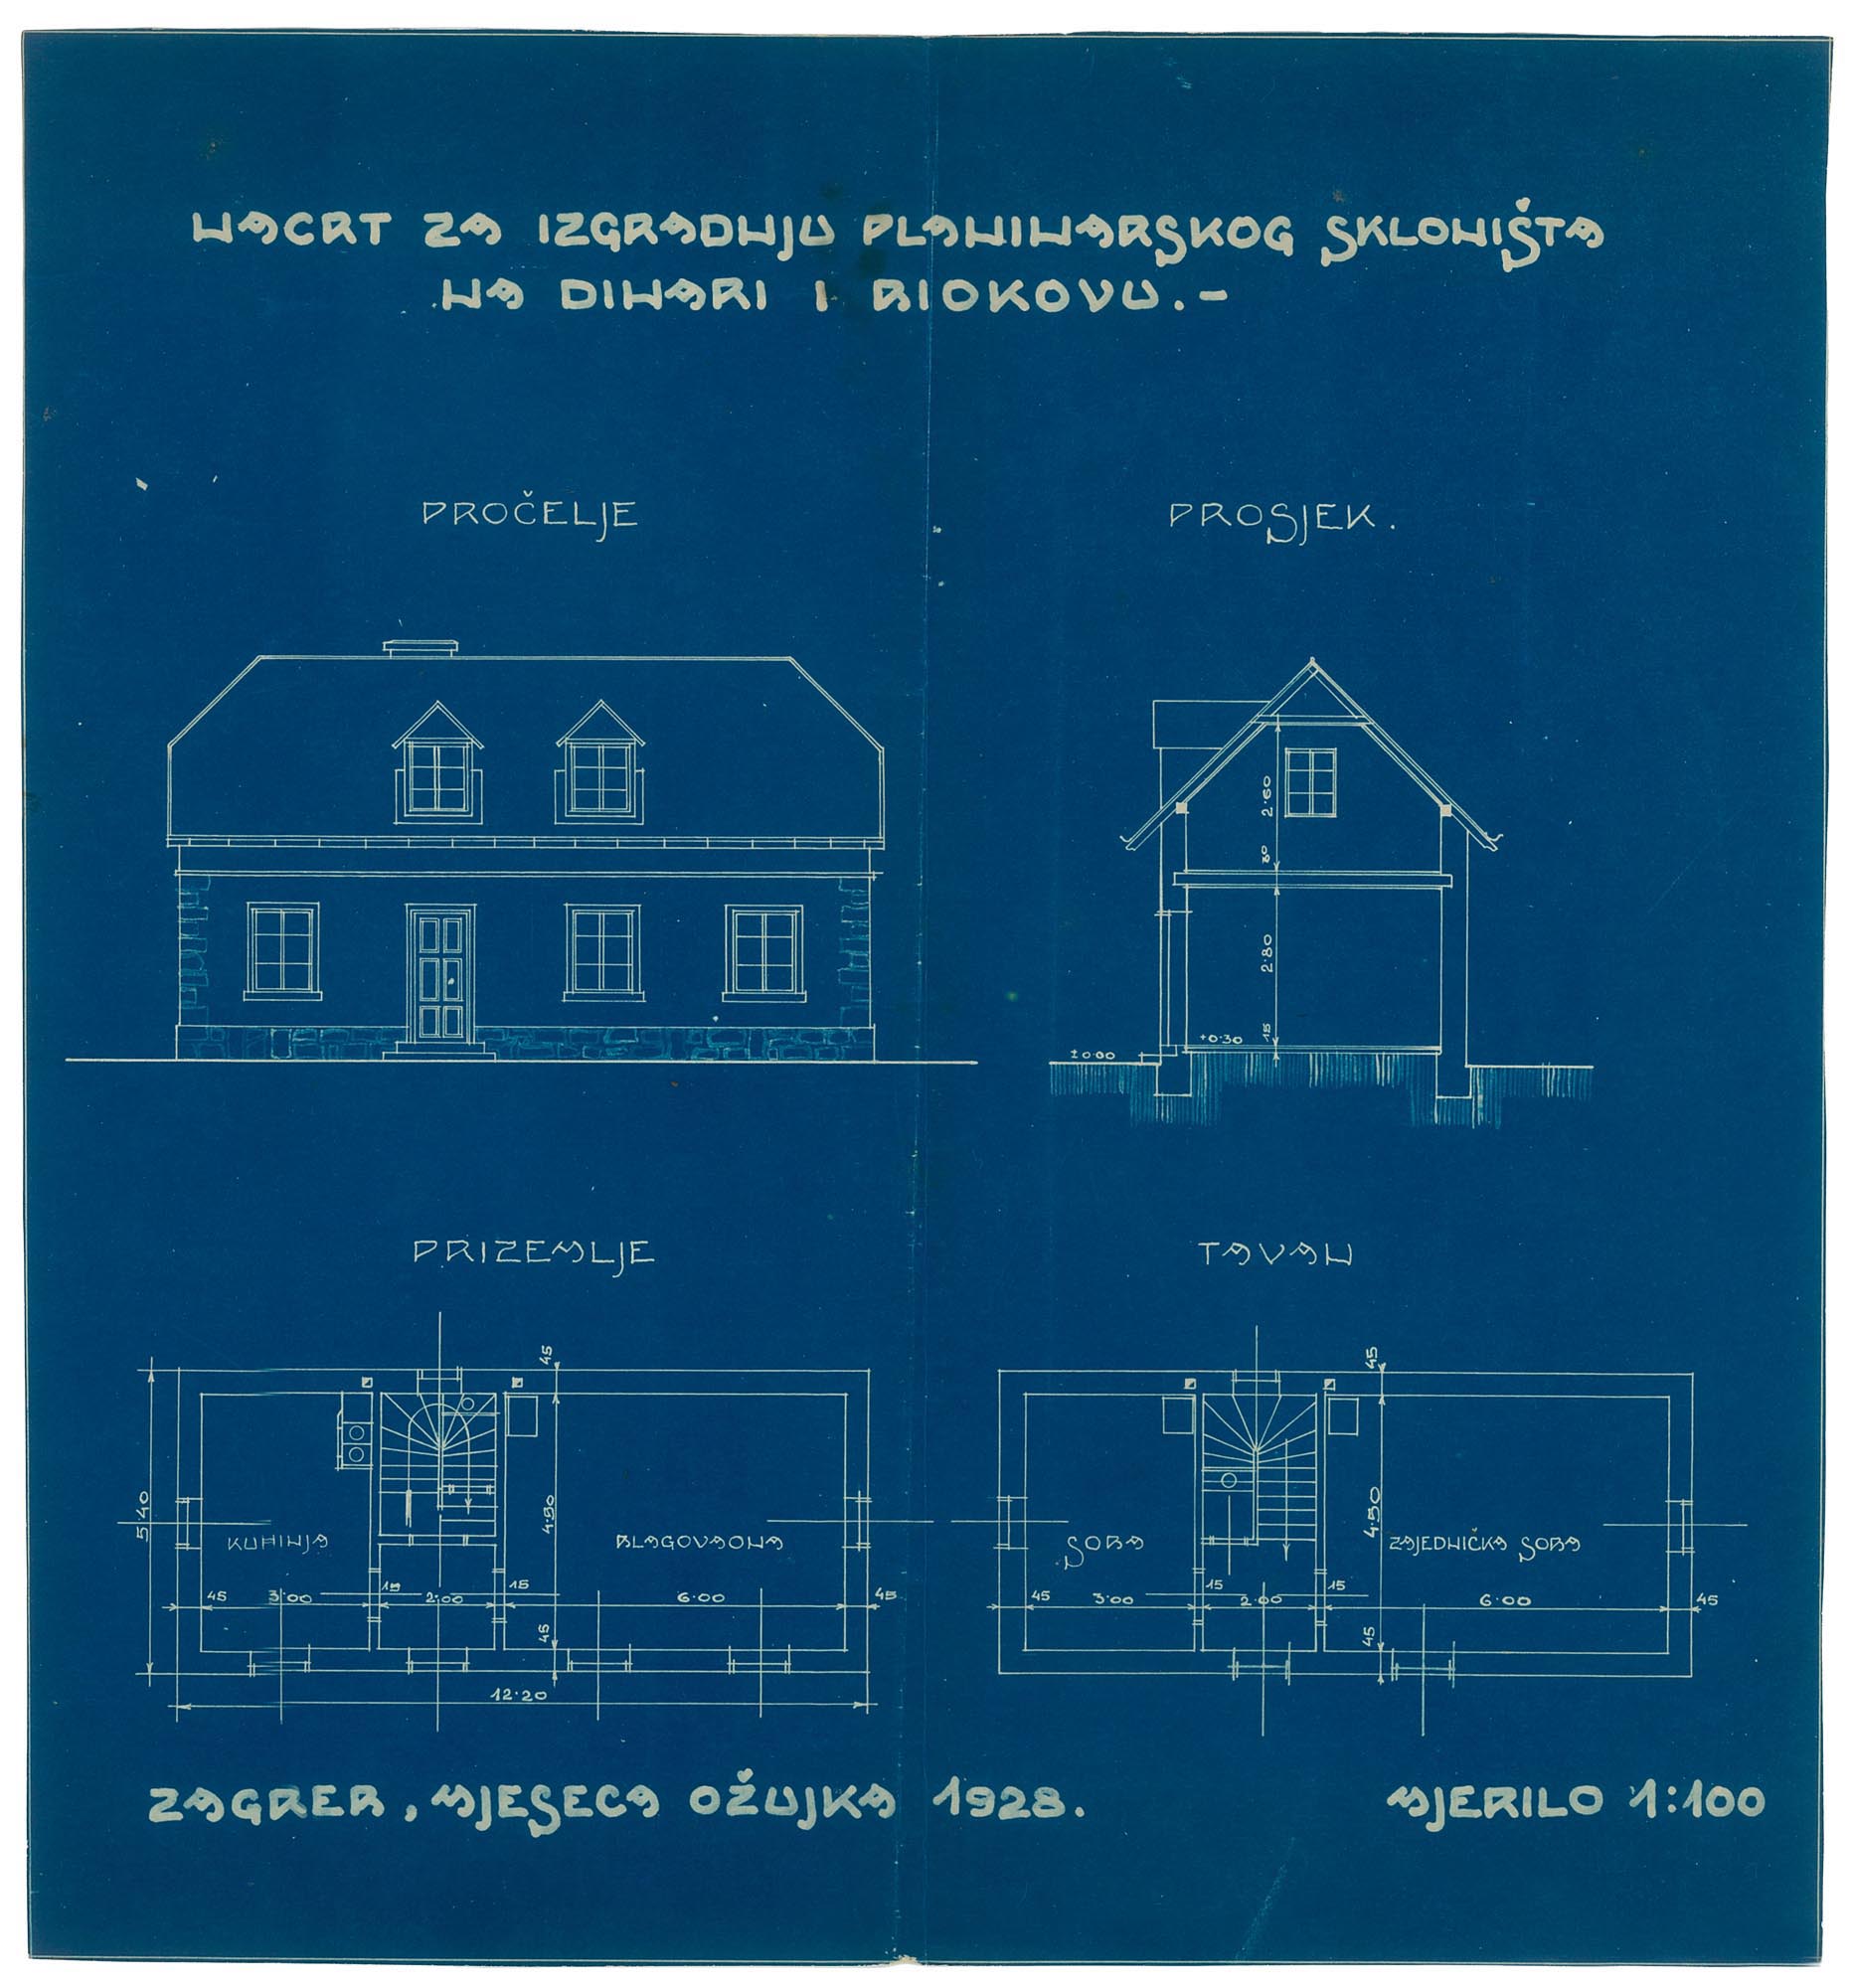 NACRT ZA IZGRADNJU PLANINARSKOG SKLONIŠTA
NA DINARI I BIOKOVU.-
PROČELJE
PROSJEK.
2·60
30
2·80
15
+0·30
±0·00
PRIZEMLJE
TAVAN
45
5·40
4·50
KUHINJA
BLAGOVAONA
45
3·00
15
2·00
15
6·00
45
45
12·20
45
4·50
SOBA
ZAJEDNIČKA SOBA
45
3·00
15
2·00
15
6·00
45
45
ZAGREB, MJESECA OŽUJKA 1928.
MJERILO 1:100